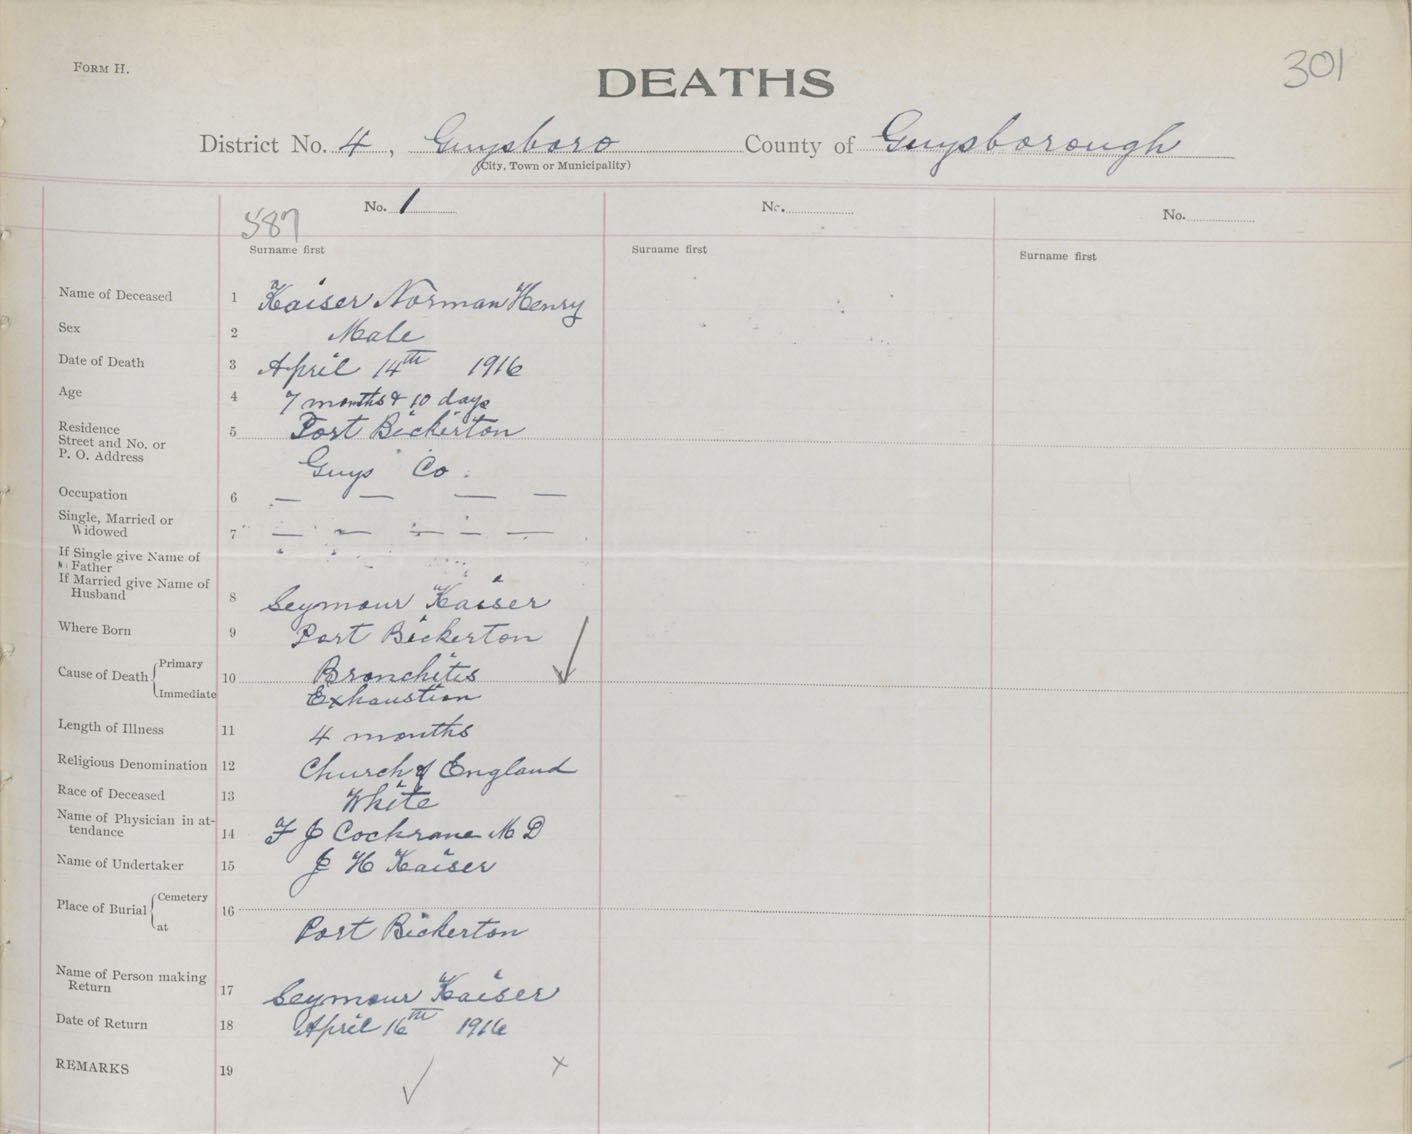 FORM H.
301
DEATHS
District No. 4, Guysboro County of Guysborough
(City, Town or Municipality)
No. 1 No. No.
587
Surname first Surname first Surname first
Name of Deceased 1 Kaiser Norman Henry
Sex 2 Male
Date of Death 3 April 14th 1916
Age 4 7 months & 10 days
Residence
Street and No. or
P. O. Address
5 Port Bickerton
Guys Co.
Occupation 6 — — — —
Single, Married or
Widowed 7 — — — — —
If Single give Name of
Father
If Married give Name of
Husband 8 Seymour Kaiser
Where Born 9 Port Bickerton
Cause of Death { Primary 10 Bronchitis
Immediate Exhaustion
Length of Illness 11 4 months
Religious Denomination 12 Church of England
Race of Deceased 13 White
Name of Physician in at-
tendance 14 F J Cochrane M D
Name of Undertaker 15 J H Kaiser
Place of Burial { Cemetery 16
at Port Bickerton
Name of Person making
Return 17 Seymour Kaiser
Date of Return 18 April 16th 1916
REMARKS 19